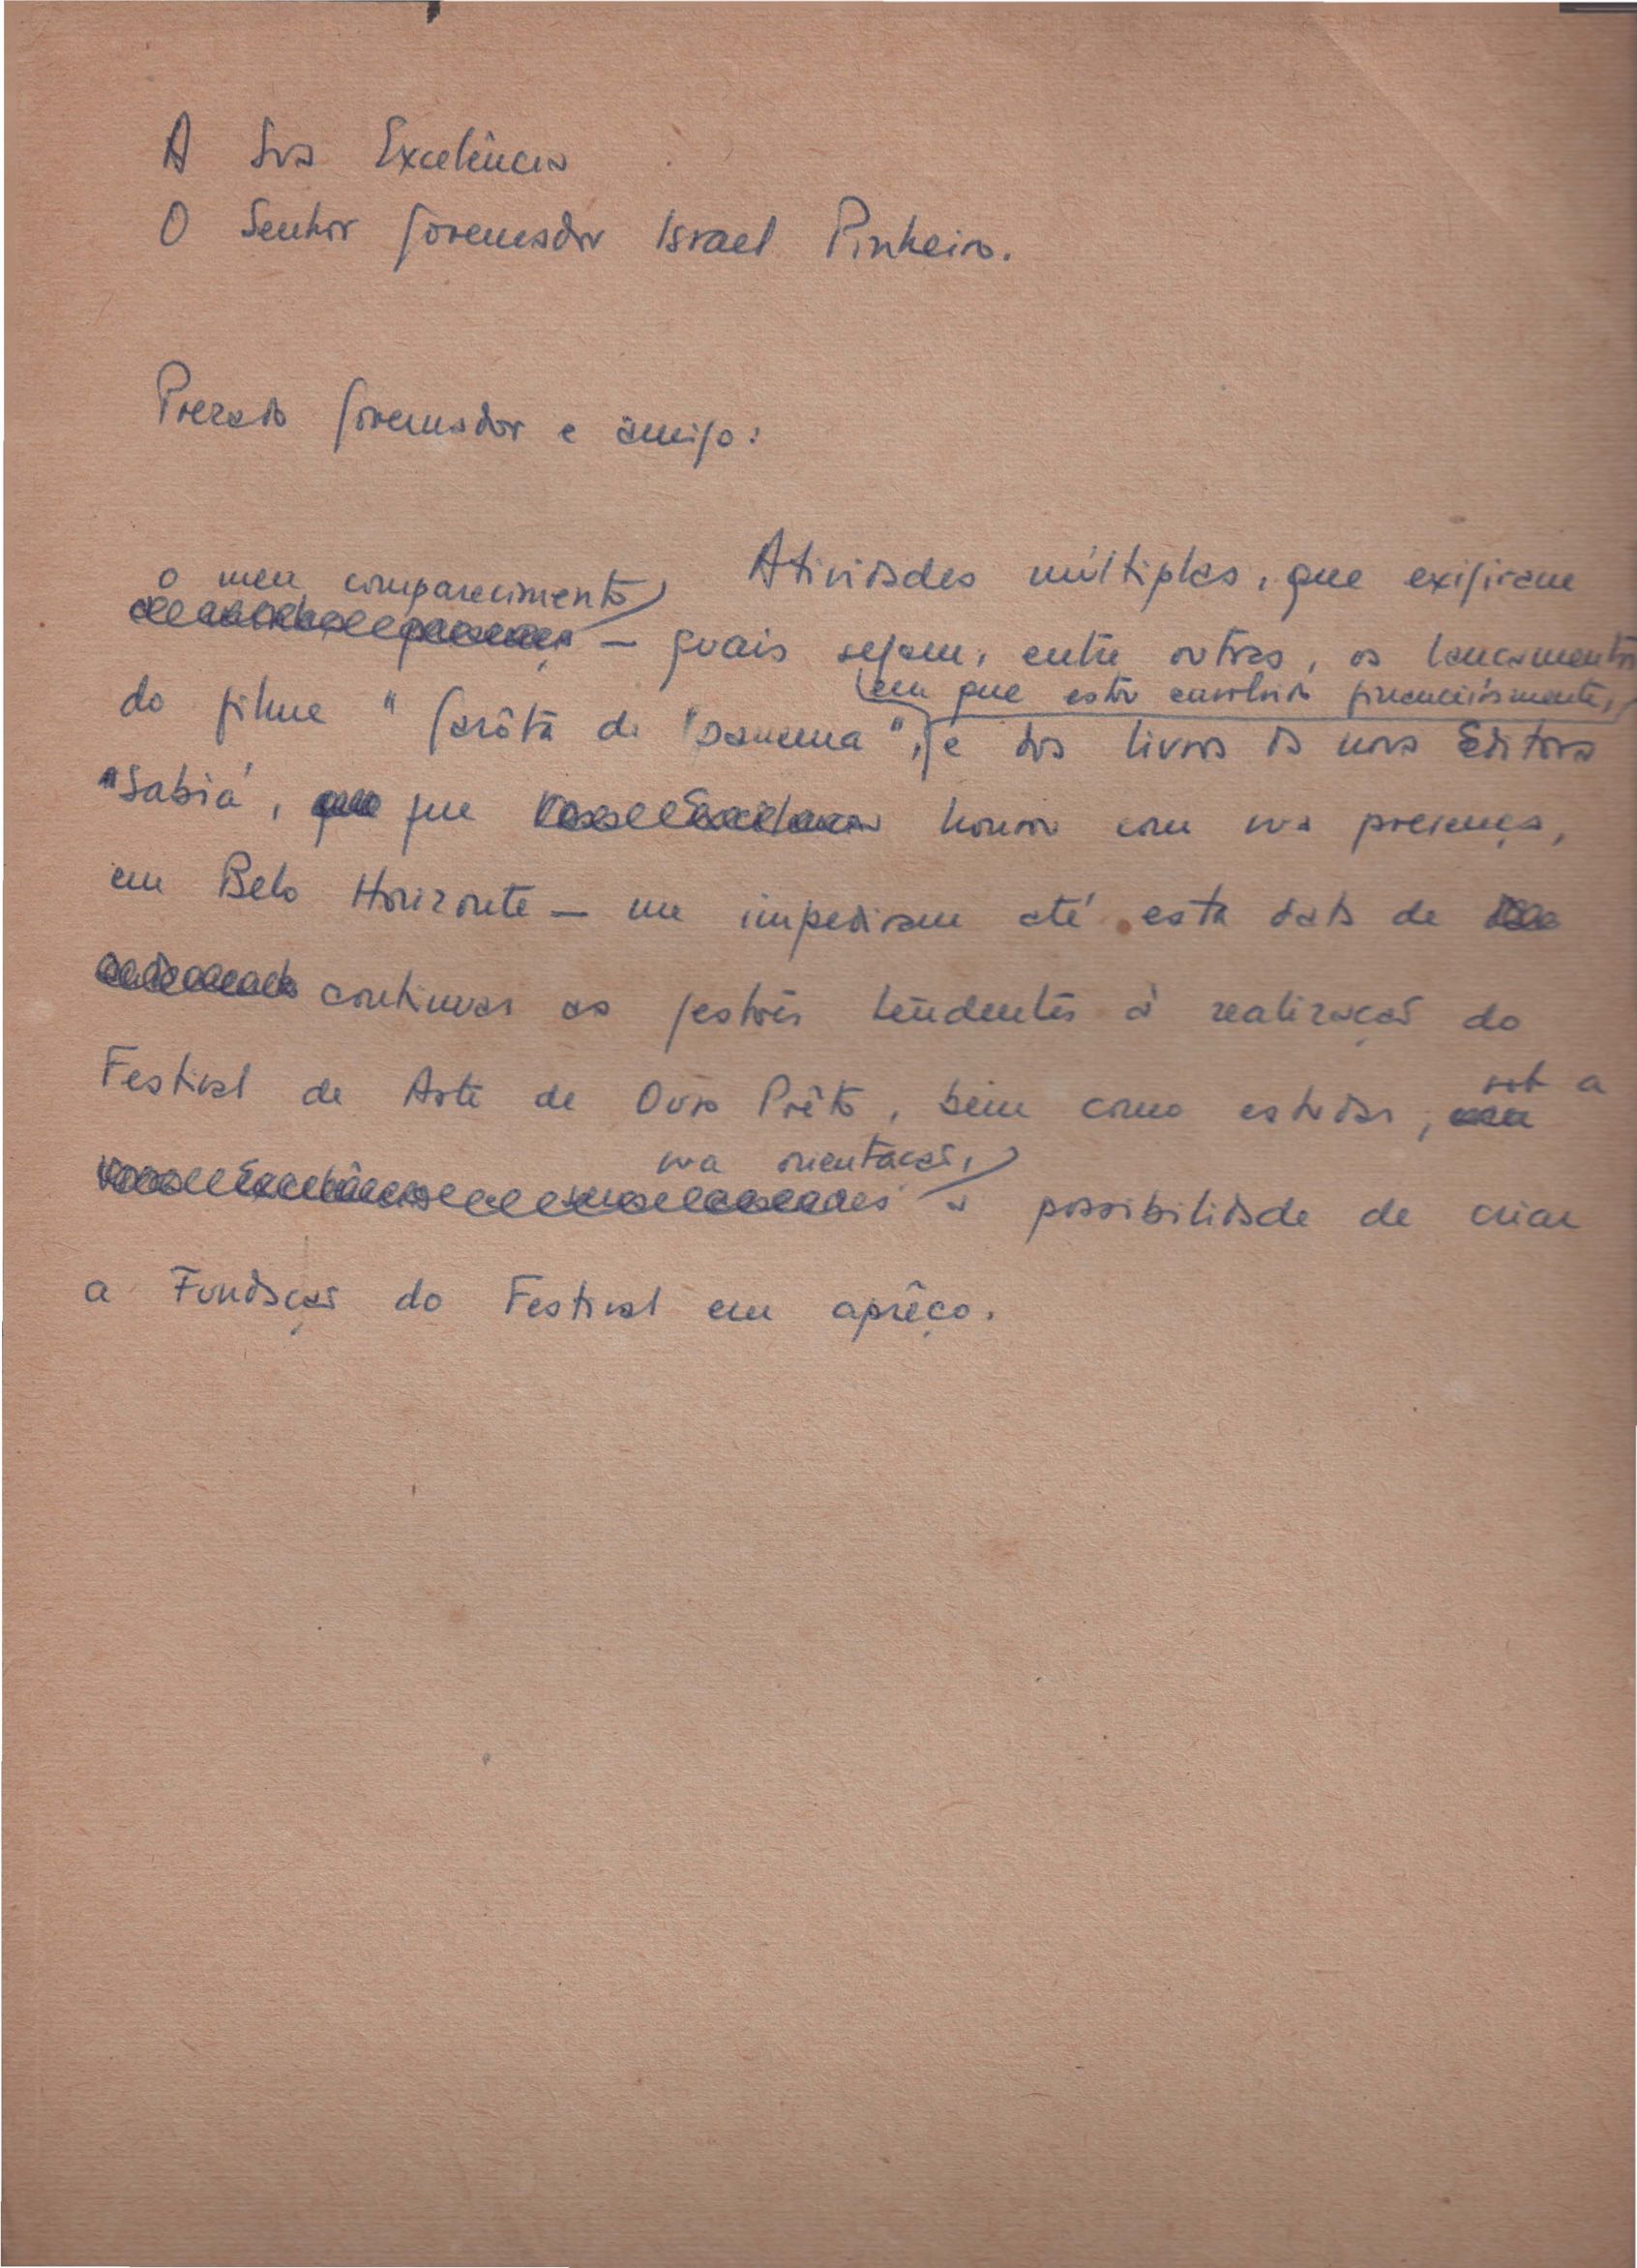 A Sua Excelência
O Senhor Governador Israel Pinheiro.
Prezado Governador e amigo:
Atividades múltiplas, que exigiram
o meu comparecimento
— quais sejam, entre outras, os lançamentos
em que estou envolvido financeiramente,
do filme "Garôta de Ipanema", e dos livros da nova Editora
"Sabiá", que honrou com sua presença,
em Belo Horizonte — me impediram até esta data de
continuar as gestões tendentes à realização do
Festival de Arte de Ouro Prêto, bem como estudar,
sob a
sua orientação,
a possibilidade de criar
a Fundação do Festival em aprêço.